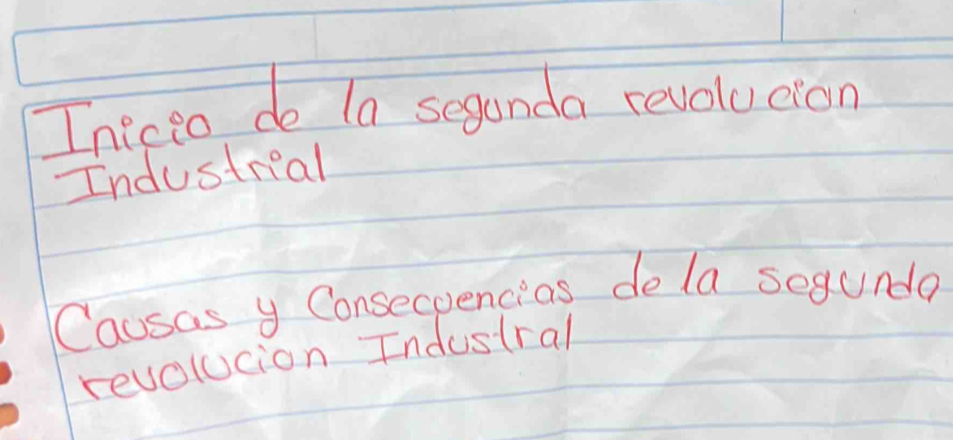 Inicio de la segunda revolucion
Industrial
Causas y Consecuencias de la segunda
revolucion Industral